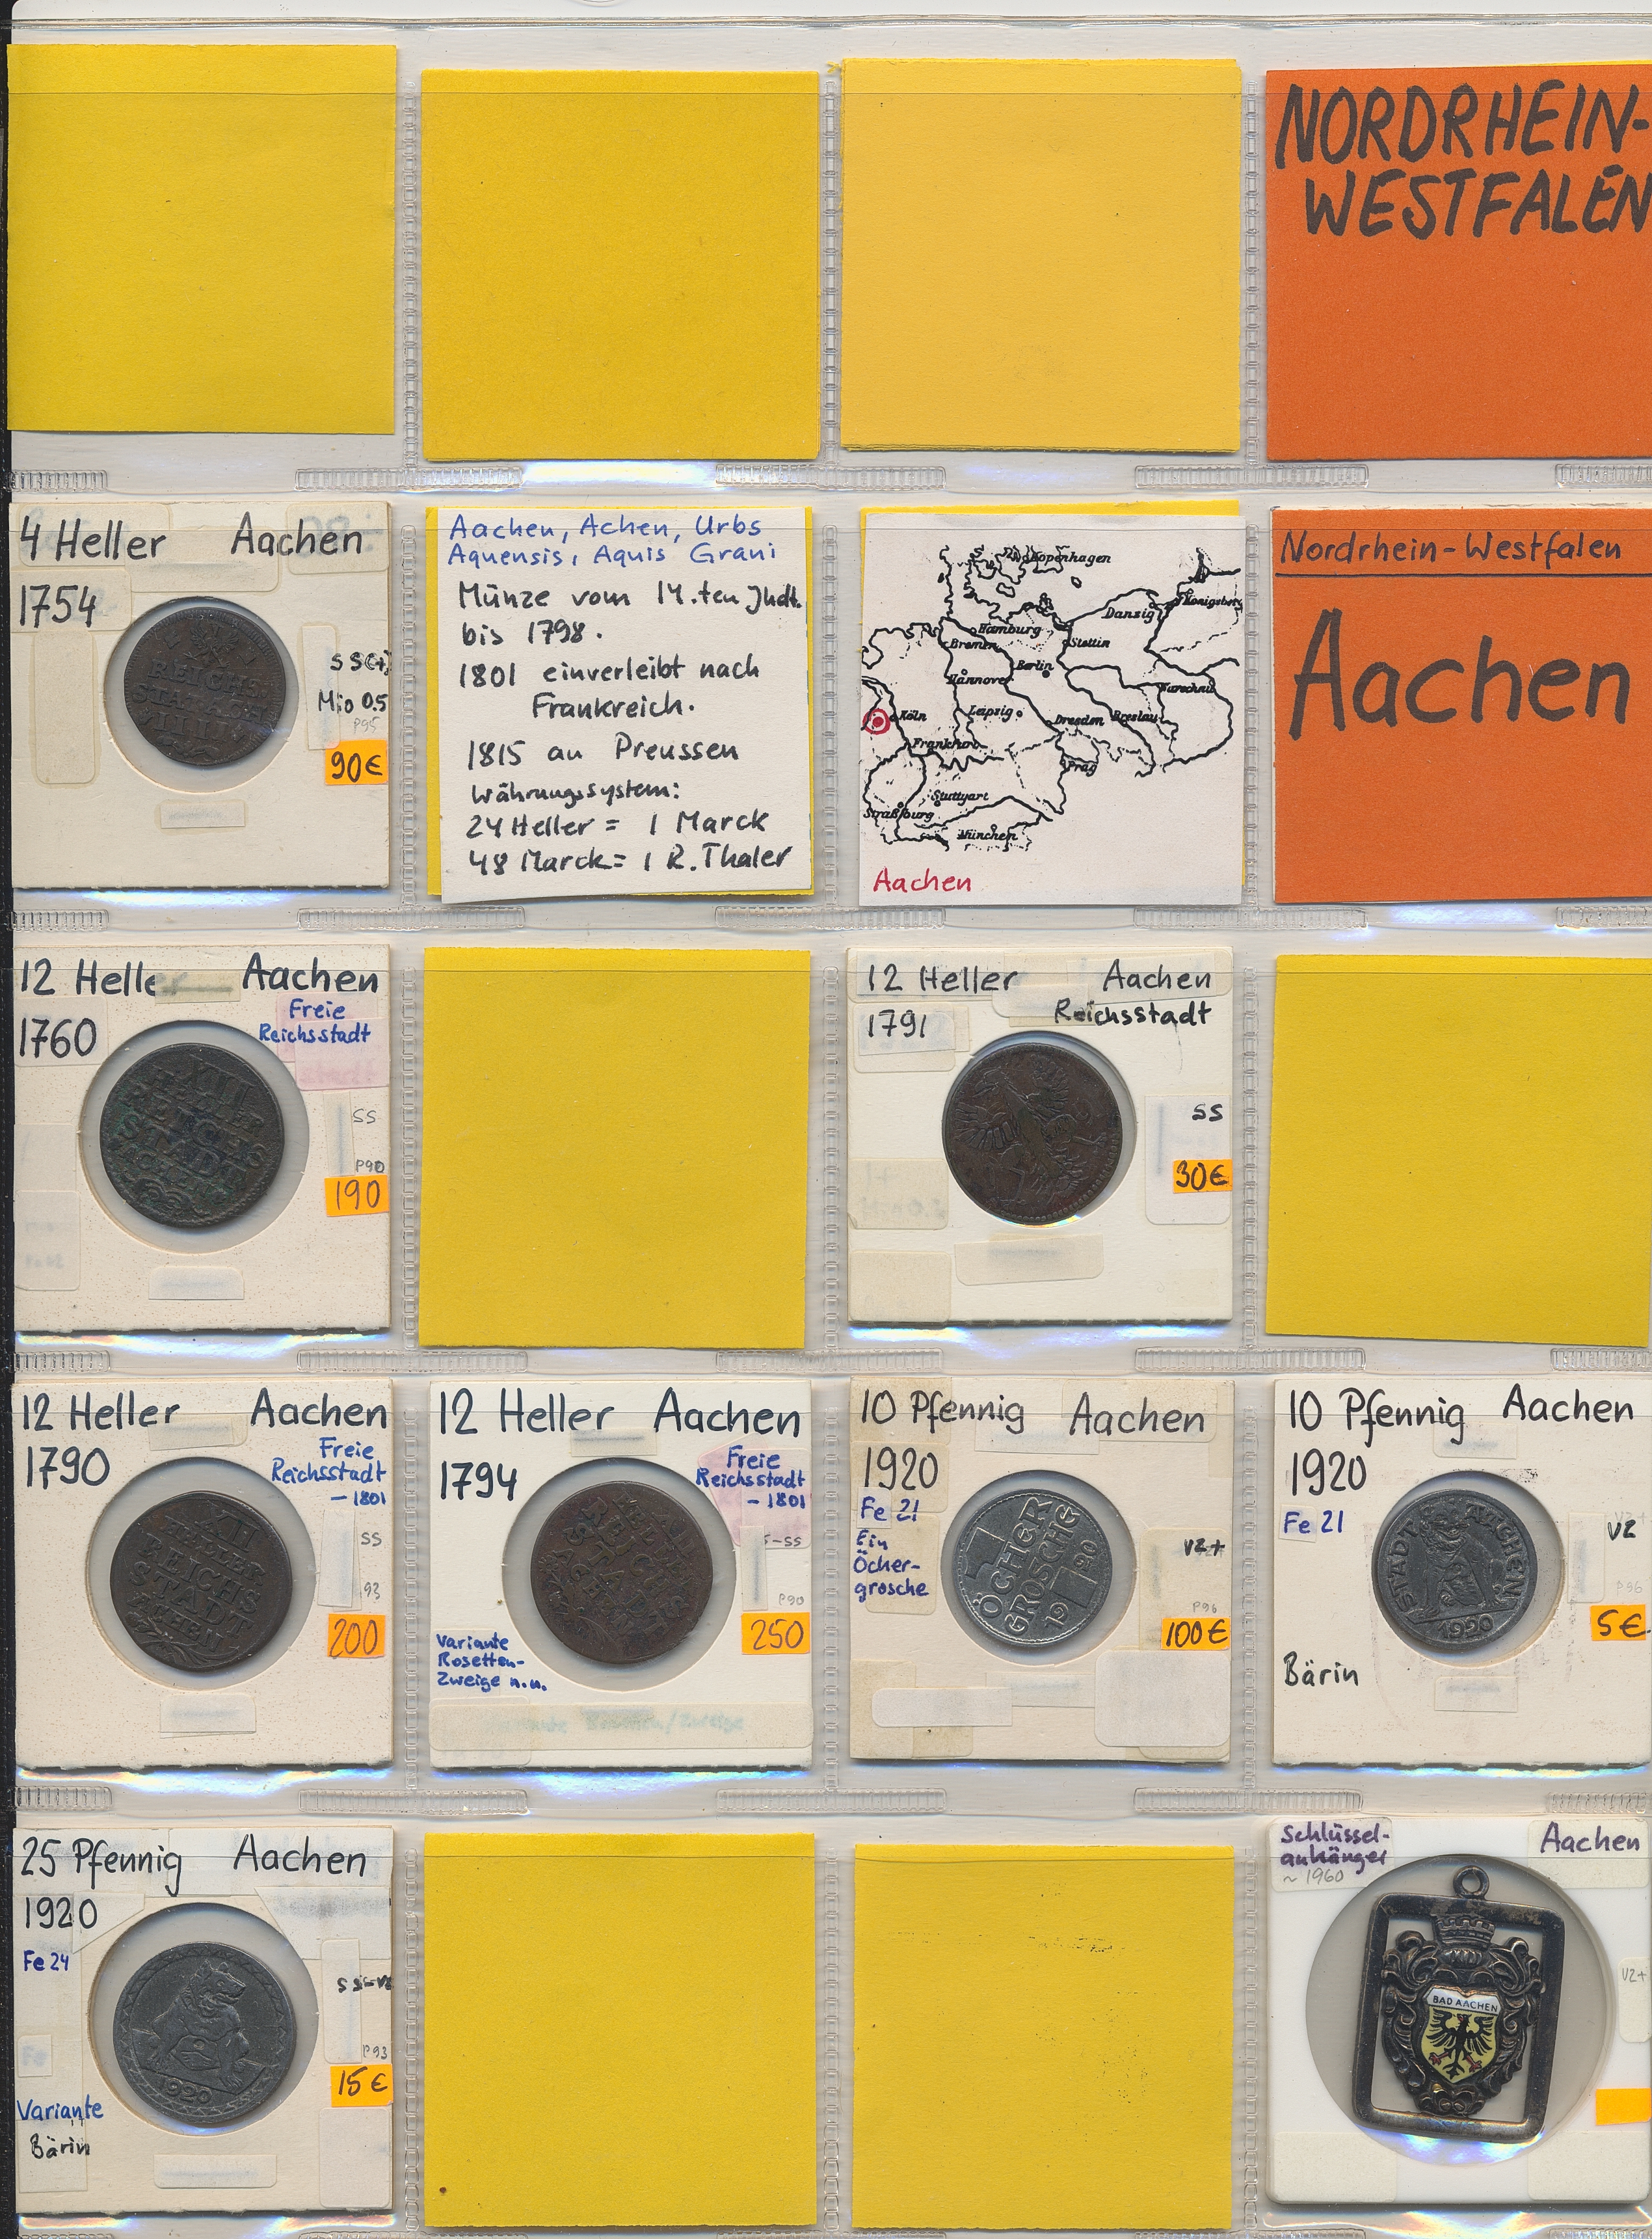 NORDRHEIN-
WESTFALEN
4 Heller Aachen
1754
REICHS
STAT ACH
IIII
SS(+)
Mio 0.5
P95
90€
Aachen, Achen, Urbs
Aquensis, Aquis Grani
Münze vom 14.ten Jhdt.
bis 1798.
1801 einverleibt nach
Frankreich.
1815 an Preussen
Währungssystem:
24 Heller = 1 Marck
48 Marck = 1 R.Thaler
Kopenhagen
Königsberg
Danzig
Hamburg
Stettin
Bremen
Berlin
Hannover
Warschau
Köln
Leipzig
Dresden
Breslau
Frankfurt
Prag
Stuttgart
Straßburg
München
Aachen
Nordrhein-Westfalen
Aachen
12 Heller Aachen
1760
Freie
Reichsstadt
XII
HELLER
REICHS
STADT
ACHEN
SS
P90
190
12 Heller Aachen
1791
Reichsstadt
SS
30€
12 Heller Aachen
1790
Freie
Reichsstadt
- 1801
XII
HELLER
REICHS
STADT
ACHEN
SS
93
200
12 Heller Aachen
1794
Freie
Reichsstadt
- 1801
S-SS
P90
250
Variante
Rosetten-
Zweige n.u.
10 Pfennig Aachen
1920
Fe 21
Ein
Öcher-
grosche
1 ÖCHER
GROSCHE
1920
vz+
P96
100€
10 Pfennig Aachen
1920
Fe 21
STADT AACHEN
1920
vz
P96
5€
Bärin
25 Pfennig Aachen
1920
Fe 24
1920
SS-vz
P93
15€
Variante
Bärin
Schlüssel-
anhänger
~ 1960
Aachen
BAD AACHEN
vz+